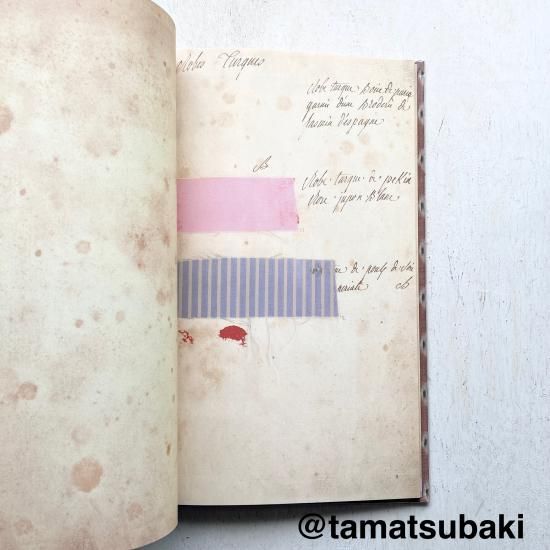 Robes Turques
Robe turque Boüe de paris
garnie d'une Broderie de
Jasmin d'espagne
B
Robe turque de pekin
Rose jupon Blanc
de poult de soie
B
@tamatsubaki